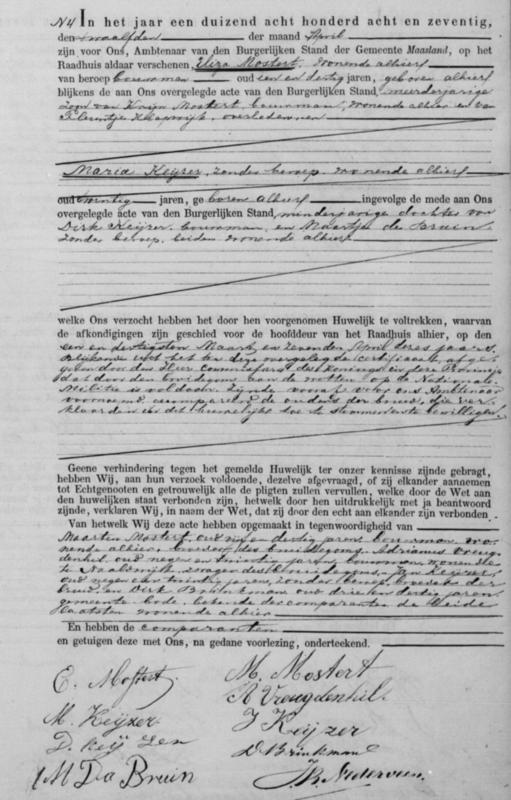 N4 In het jaar een duizend acht honderd acht en zeventig,
den twaalfden der maand April
zijn voor Ons, Ambtenaar van den Burgerlijken Stand der Gemeente Maasland, op het
Raadhuis aldaar verschenen, Eliza Mostert, wonende alhier
van beroep bouwman oud een en dertig jaren, geboren alhier
blijkens de aan Ons overgelegde acte van den Burgerlijken Stand, meerderjarige
zoon van Krijn Mostert, bouwman, wonende alhier en van
overleden
Maria Keijzer, zonder beroep, wonende alhier
oud twintig jaren, geboren alhier ingevolge de mede aan Ons
overgelegde acte van den Burgerlijken Stand, minderjarige dochter van
Dirk Keijzer, bouwman, en Maartje de Bruin,
zonder beroep, beiden wonende alhier
welke Ons verzocht hebben het door hen voorgenomen Huwelijk te voltrekken, waarvan
de afkondigingen zijn geschied voor de hoofddeur van het Raadhuis alhier, op den
een en dertigsten Maart en zevenden April dezes jaars,
blijkende uit het ten deze overgelegde certificaat, afge-
geven door den Heer Commissaris des Konings in deze Provincie
dat door den bruidegom aan de wetten op de Nationale
Militie is voldaan. Zijnde voorts voor ons Ambtenaar
voornoemd, gecompareerd de ouders der bruid, die ver-
klaarden in dit huwelijk toe te stemmen en te bewilligen.
Geene verhindering tegen het gemelde Huwelijk ter onzer kennisse zijnde gebragt,
hebben Wij, aan hun verzoek voldoende, dezelve afgevraagd, of zij elkander aannemen
tot Echtgenooten en getrouwelijk alle de pligten zullen vervullen, welke door de Wet aan
den huwelijken staat verbonden zijn, hetwelk door hen uitdrukkelijk met ja beantwoord
zijnde, verklaren Wij, in naam der Wet, dat zij door den echt aan elkander zijn verbonden
Van hetwelk Wij deze acte hebben opgemaakt in tegenwoordigheid van
Maarten Mostert, oud en dertig jaren, bouwman, wo-
nende alhier, broeder des bruidegoms, Adrianus Vreug-
denhil, oud negen en twintig jaren, bouwman, wonende
te Naaldwijk, zwager des bruidegoms, Keijzer,
oud negen en twintig jaren, zonder beroep, broeder der
bruid, en Dirk Brinkman, oud drie en dertig jaren,
gemeente bode, bekende der comparanten, de beide
laatsten wonende alhier
En hebben de comparanten
en getuigen deze met Ons, na gedane voorlezing, onderteekend.
E. Mostert. M. Mostert
A Vreugdenhil.
M. Keijzer J Keijzer
D. keijzer D Brinkman
M Da Bruin